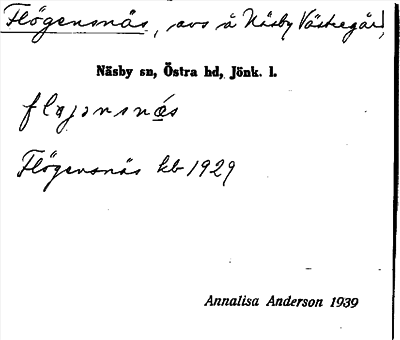 Flögensnäs, avs å Näsby Västregård,
Näsby sn, Östra hd, Jönk. l.
Flögensnäs kb 1929
Annalisa Anderson 1939